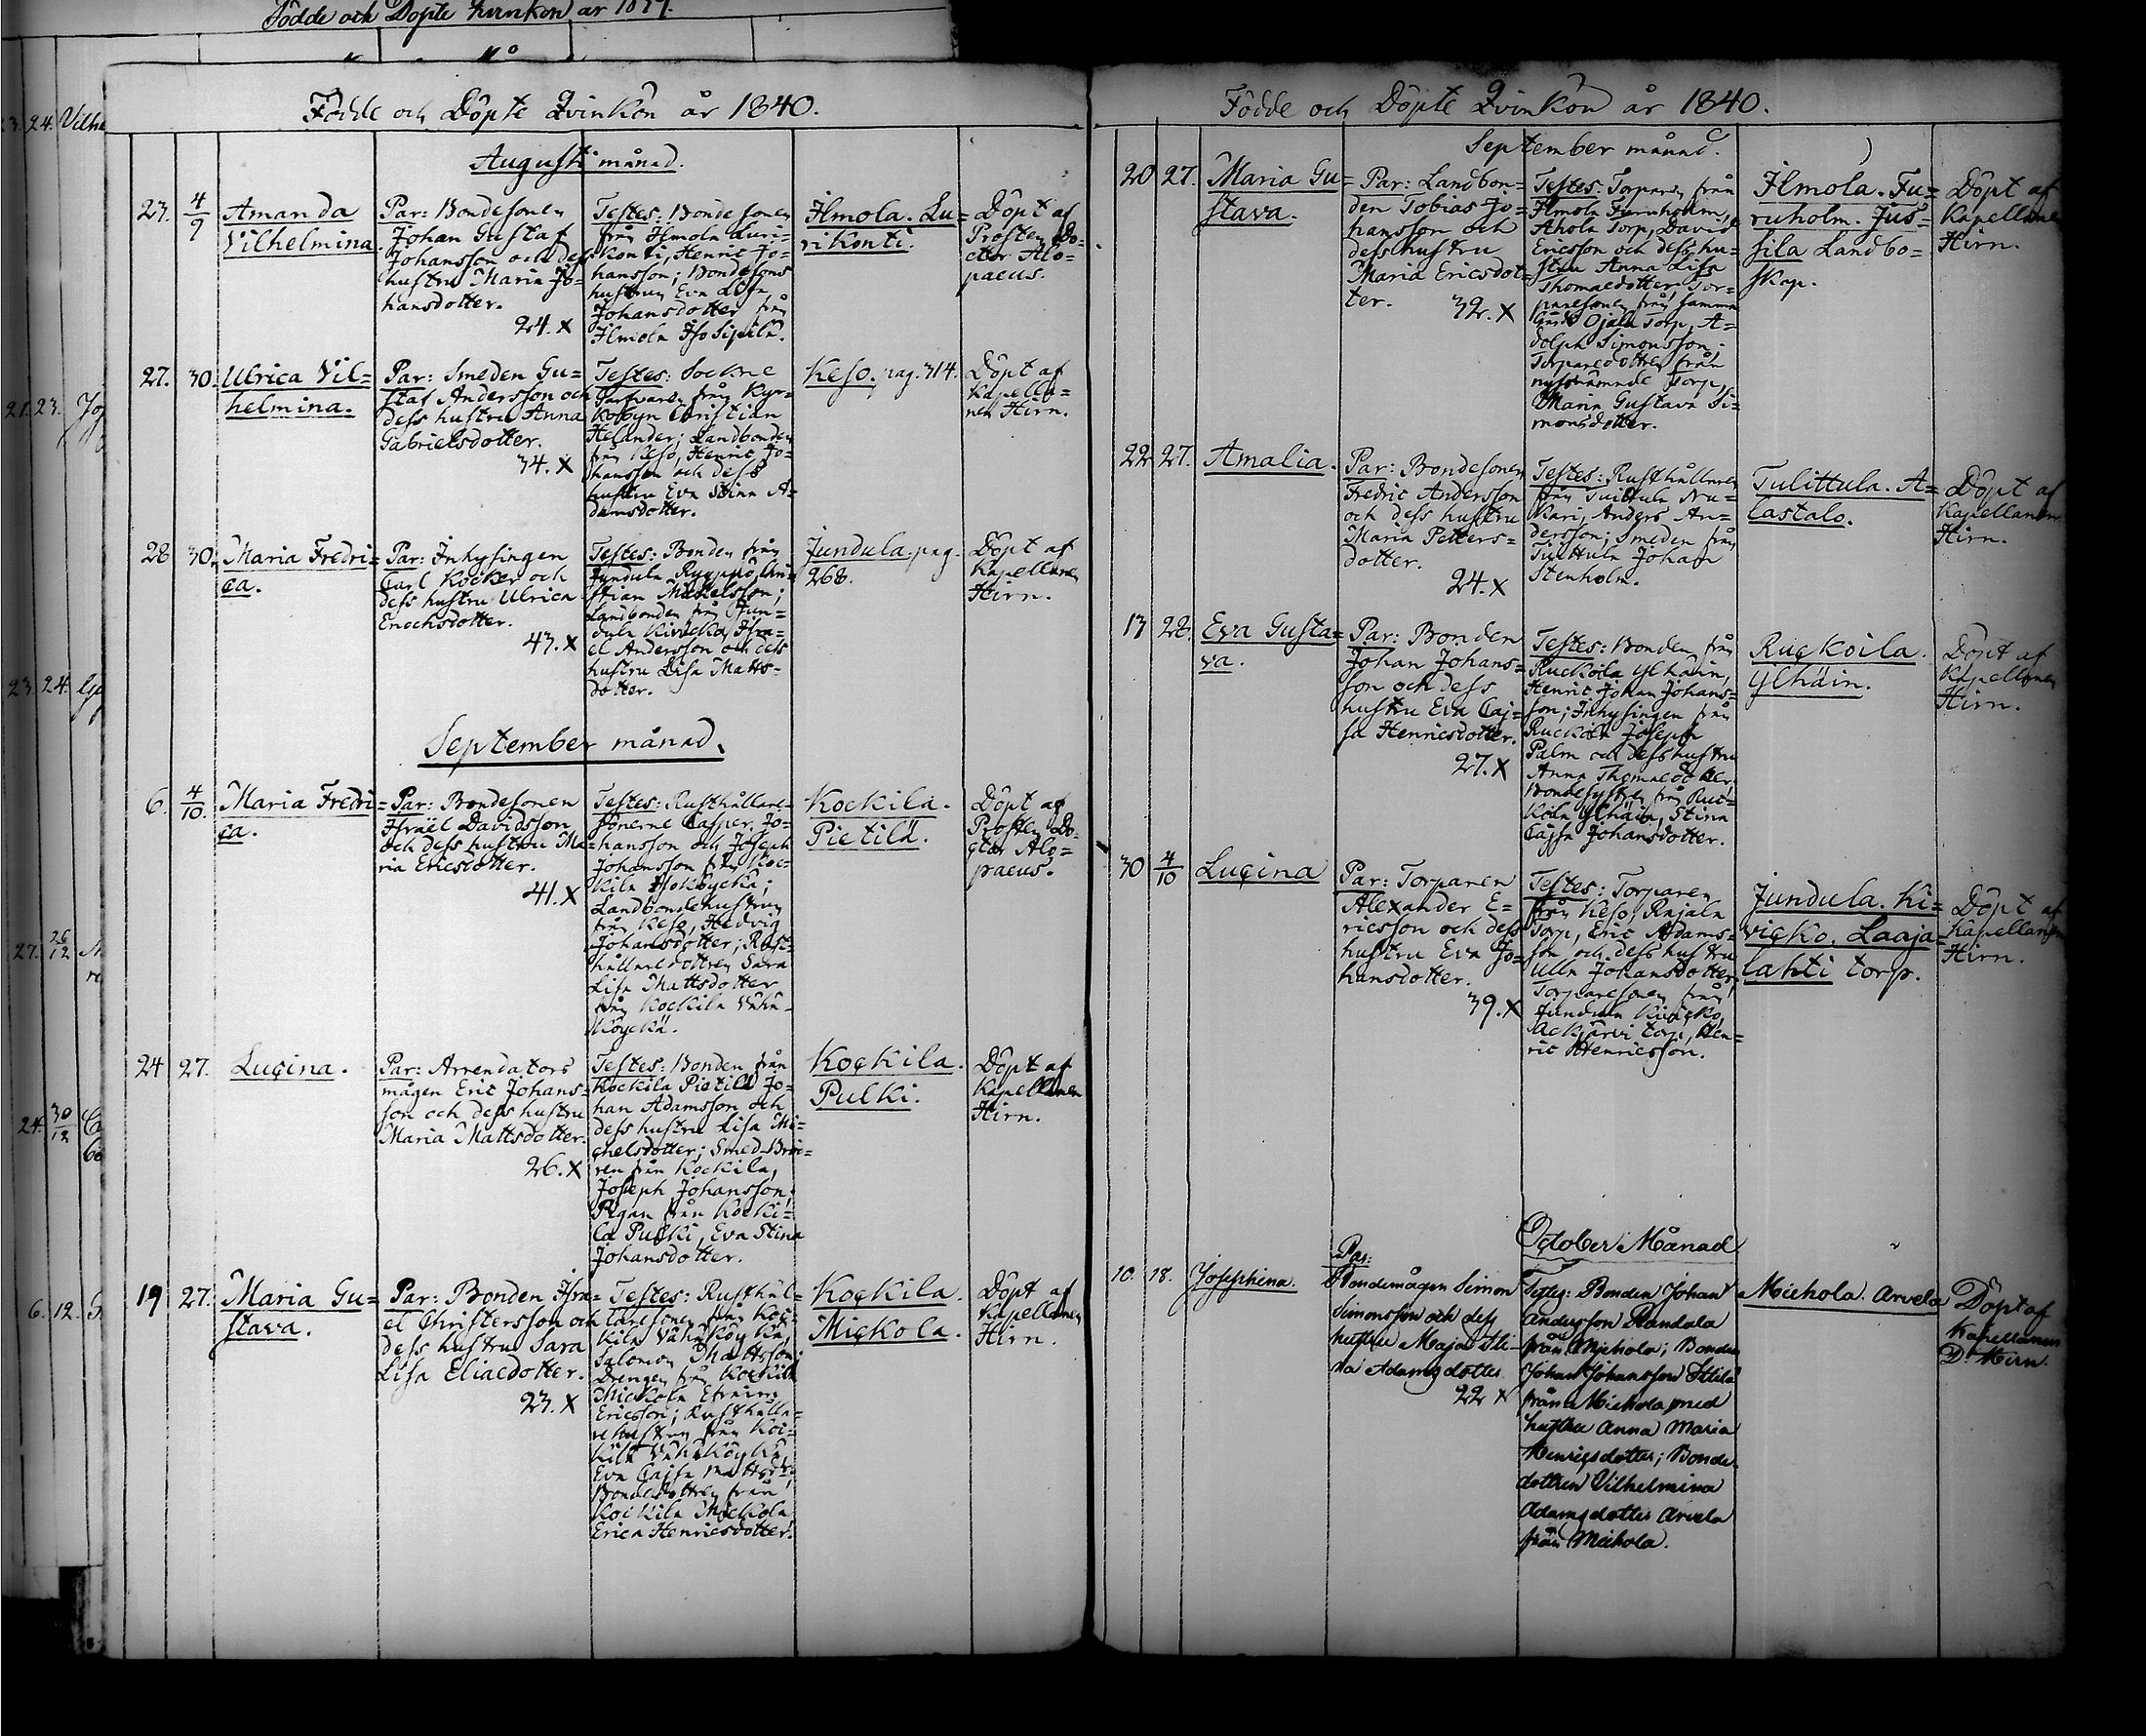 Födde och Döpte qvinkön år 18
24. Vilhe
21. 23.
23. 24.
27. 26/12
24. 30/12
6. 12.
Födde och Döpte Qvinkön år 1840.
Augusti månad.
23. 4/9 Amanda
Vilhelmina.
Par: Bondesonen
Johan Gustaf
Johansson och dess
hustru Maria Jo=
hansdotter.
24. X
Testes: Bondesonen
från Ilmola Luri=
Konti, Henric Jo=
hansson; Bondesons
hustrun Eva Lisa
Johansdotter från
Ilmola Iso Sipilä.
Ilmola. Lu=
rikonti.
Döpt af
Prosten Do=
ctor Alo=
paeus.
27. 30. Ulrica Vil=
helmina.
Par: Smeden Gu=
staf Andersson och
dess hustru Anna
Gabrielsdotter.
34. X
Testes: Sockne
från Kyr=
Kobyn Christian
Helander; Landbonden
från Keso, Henric Jo=
hansson och dess
hustru Eva Stina A=
damsdotter.
Keso. pag. 314.
Döpt af
Kapella=
nen Hirn.
28 30. Maria Fredri=
ca.
Par: Inhysingen
Carl Kocker och
dess hustru Ulrica
Enochsdotter.
43. X
Testes: Bonden från
Jundula Ryyppö, Chri=
stian Mickelsson;
Landbonden från Jun=
dula Kivicko, Isra=
el Andersson och dess
hustru Lisa Matts=
dotter.
Jundula. pag.
268.
Döpt af
Kapellanen
Hirn.
September månad.
6. 4/10. Maria Fredri=
ca.
Par: Bondesonen
Israël Davidsson
och dess hustru Ma=
ria Ericsdotter.
41. X
Testes: Rusthållare=
sönerne Casper Jo=
hansson och Joseph
Johansson från Koc=
kila Isoköyckä;
Landbondehustrun
från Keso, Hedvig
Johansdotter; Rust=
hållaredottren Sara
Lisa Mattsdotter
från Kockila Vähä=
köyckä.
Kockila.
Pietilä.
Döpt af
Prosten Do=
ctor Alo=
paeus.
24 27. Lucina.
Par: Arrendators
mågen Eric Johans=
son och dess hustru
Maria Mattsdotter.
26. X
Testes: Bonden från
Kockila Pietilä Jo=
han Adamsson och
dess hustru Lisa Mi=
chelsdotter; Smed-
från Kockila,
Joseph Johansson;
Pigan från Kocki=
la Pulki, Eva Stina
Johansdotter.
Kockila.
Pulki.
Döpt af
Kapellanen
Hirn.
19 27. Maria Gu=
stava.
Par: Bonden Isra=
el Christersson och
dess hustru Sara
Lisa Eliaedotter.
23. X
Testes: Rusthål=
laresonen från Koc=
kila Vähäköyckä,
Salomon Mattsson;
Drengen från Kockila
Mickola Efraim
Ericsson; Rusthålla=
rehustrun från Koc=
kila Vähäköyckä
Eva Cajsa Mattsdr;
Bondedottren från
Kockila Mickola
Erica Henricsdotter.
Kockila.
Mickola.
Döpt af
Kapellanen
Hirn.
Födde och Döpte Qvinkön år 1840.
September månad.
20 27. Maria Gu=
stava.
Par: Landbon=
den Tobias Jo=
hansson och
dess hustru
Maria Ericsdot=
ter.
32. X
Testes: Torparen från
Ilmola Furuholm,
Ahola Torp, David
Ericsson och dess hu=
stru Anna Lisa
Thomaedotter; Tor=
paresonen från samma
Ojala Torp, A=
dolph Simonsson;
Torparedottren från
nyssnämnde Torp,
Maria Gustava Si=
monsdotter.
Ilmola. Fu=
ruholm. Jus=
sila Landbo=
skap.
Döpt af
Kapellanen
Hirn.
22 27. Amalia.
Par: Bondesonen
Fredric Andersson
och dess hustru
Maria Petters=
dotter.
24. X
Testes: Rusthållaren
från Tulittula Nu=
kari, Anders An=
dersson; Smeden från
Tulittula Johan
Stenholm.
Tulittula. A=
lastalo.
Döpt af
Kapellanen
Hirn.
13 28. Eva Gusta=
va.
Par: Bonden
Johan Johans=
son och dess
hustru Eva Caj=
sa Henricsdotter.
27. X
Testes: Bonden från
Ruckoila Ylhäin,
Henric Johan Johans=
son; Inhysingen från
Ruckoila Joseph
Palm och dess hustru
Anna Thomaedotter;
Bondesystren från Ruc=
koila Ylhäin, Stina
Cajsa Johansdotter.
Ruckoila.
Ylhäin.
Döpt af
Kapellanen
Hirn.
30 4/10 Lucina
Par: Torparen
Alexander E=
ricsson och dess
hustru Eva Jo=
hansdotter.
39. X
Testes: Torparen
från Keso, Rajala
Torp, Eric Adams=
son och dess hustru
Ulla Johansdotter;
Torparesonen från
Jundula Kivicko,
Ackjärvi torp, Hen=
ric Henricsson.
Jundula. Ki=
vicko. Laaja=
lahti torp.
Döpt af
Kapellanen
Hirn.
October Månad
10. 18. Josephina.
Par:
Bondemågen Simon
Simonsson och dess
hustru Maja Sti=
na Adamsdotter
22 X
Testes: Bonden Johan
Andersson Randala
från Michola; Bonden
Johan Johansson Stila
från Michola med
hustru Anna Maria
Henrigsdotter; Bonde
dottren Vilhelmina
Adamsdotter Arvela
från Michola.
Michola. Arvela
Döpt af
Kapellanen
D: Hirn.